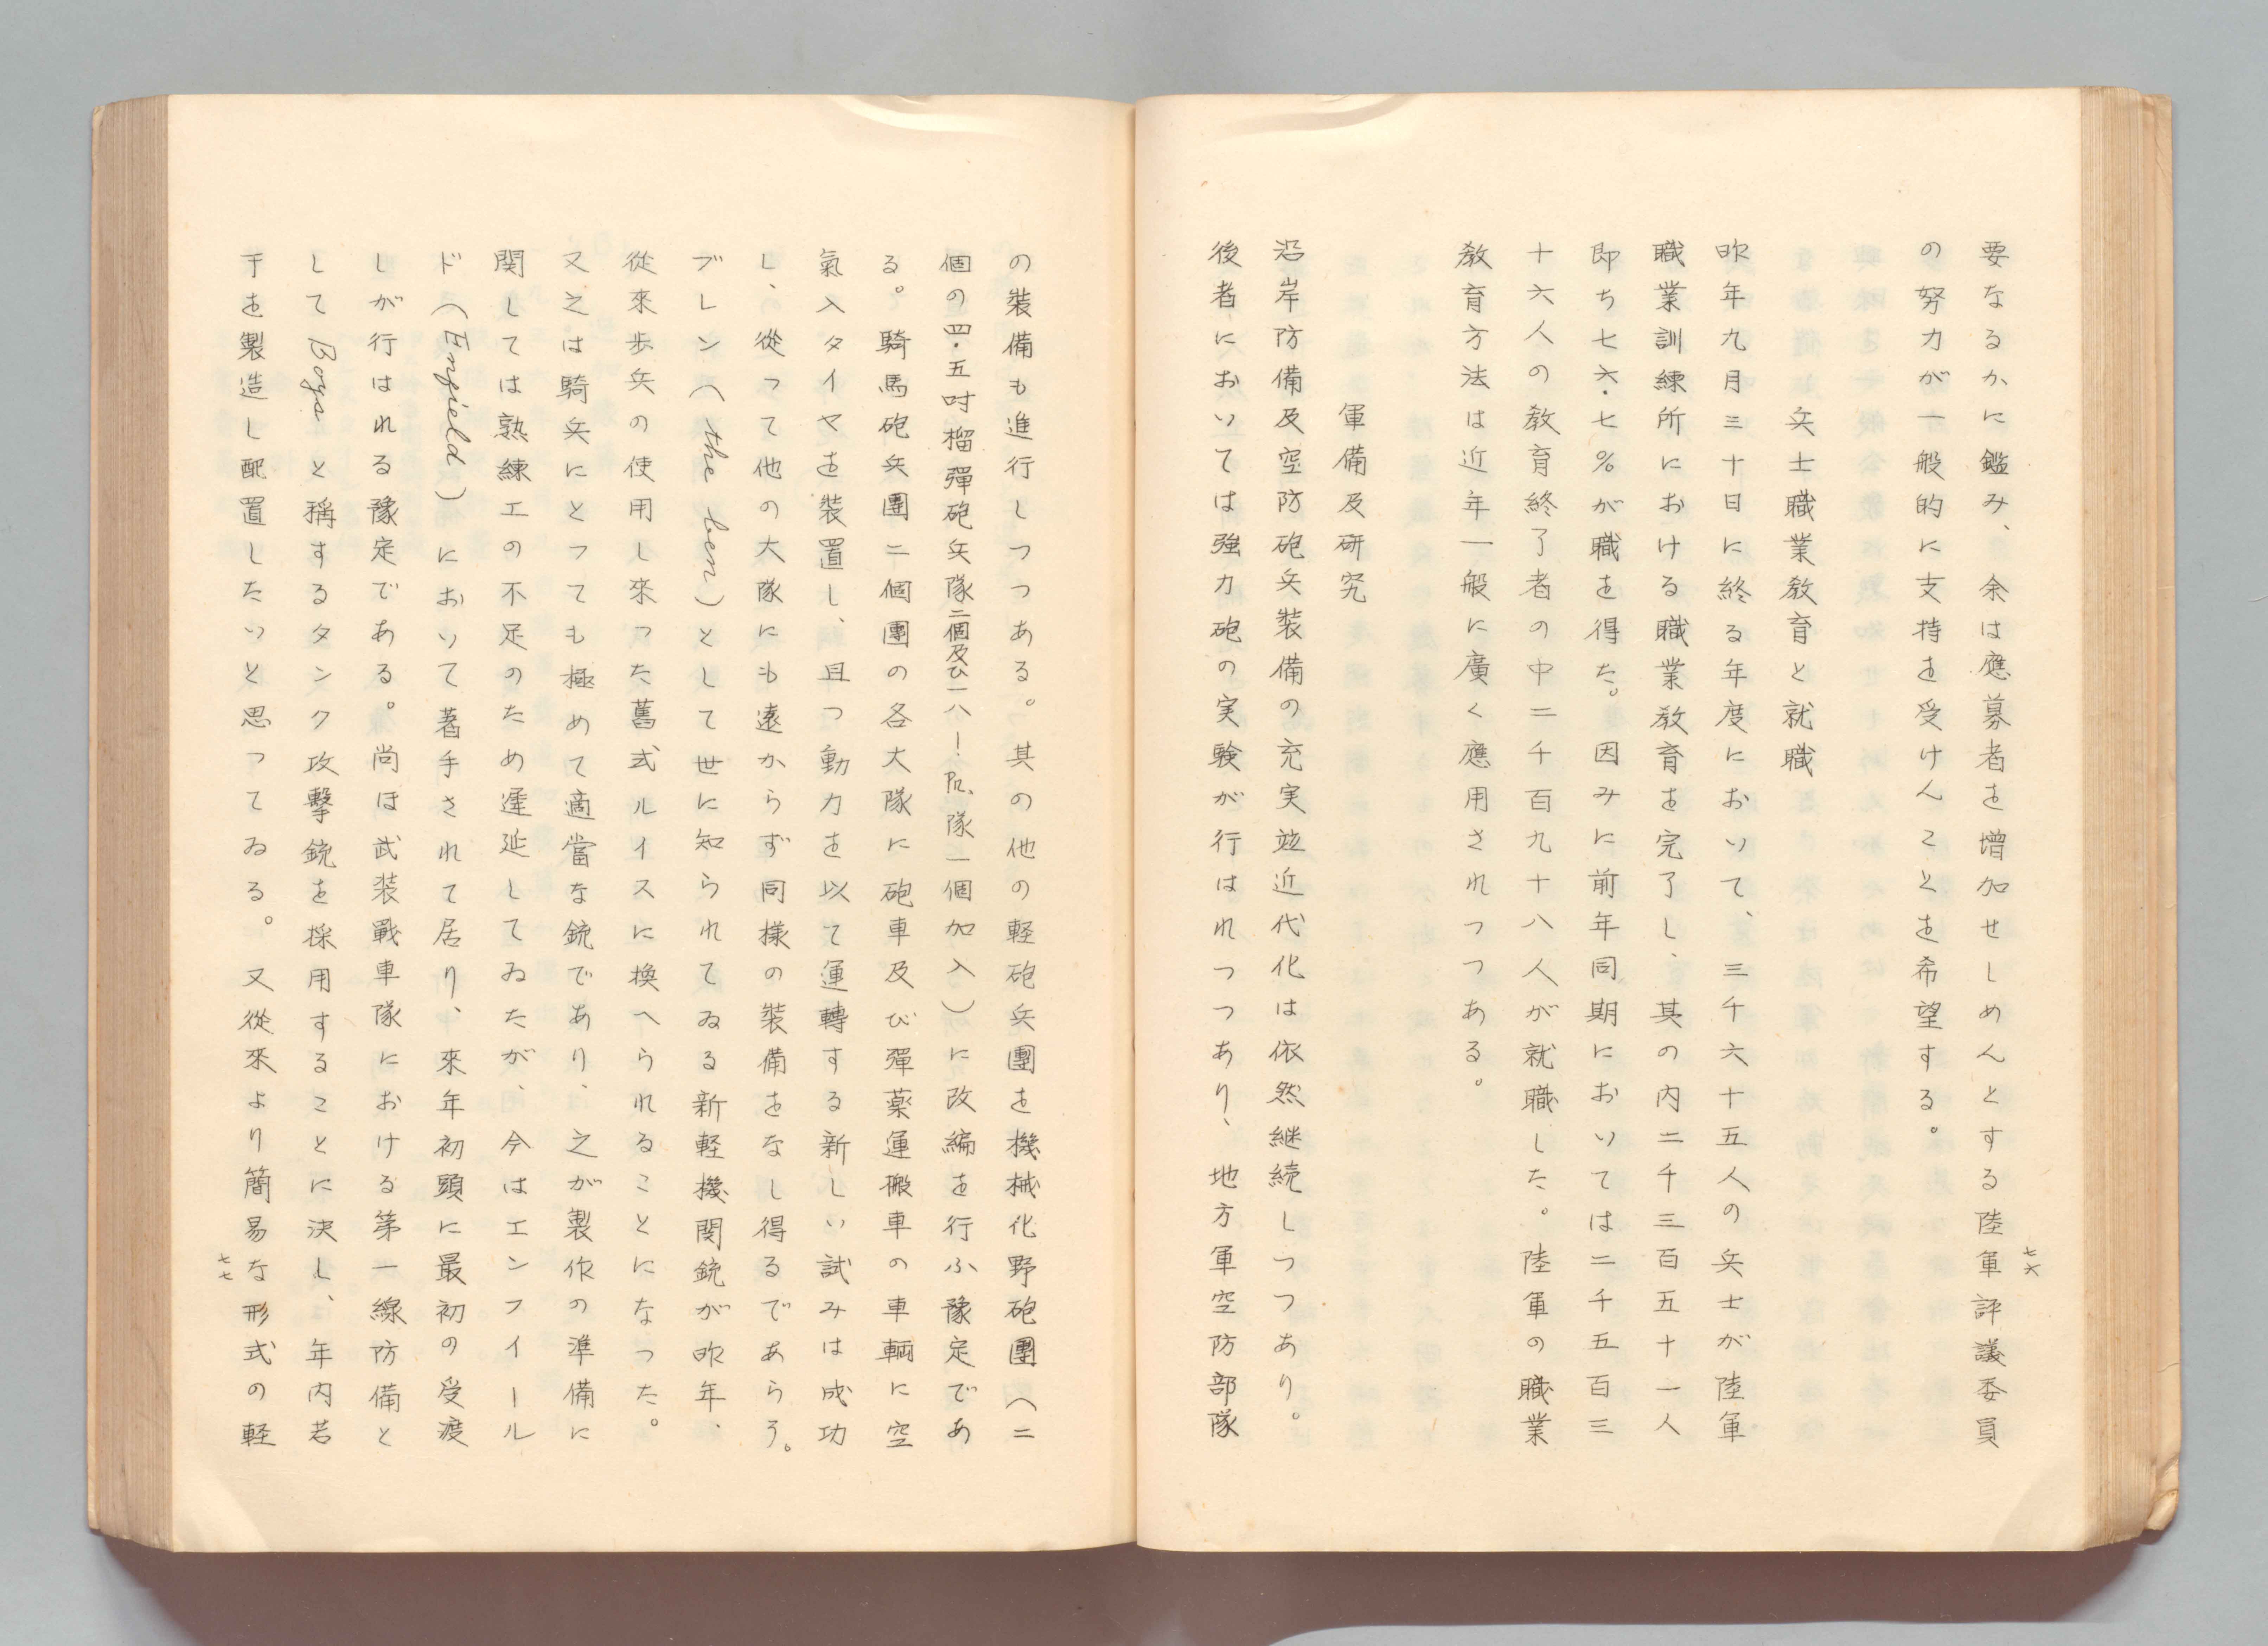 要なるかに鑑み、余は應募者を増加せしめんとする陸軍評議委員
の努力が一般的に支持を受けんことを希望する。
兵士職業教育と就職
昨年九月三十日に終る年度において、三千六十五人の兵士が陸軍
職業訓練所における職業教育を完了し、其の内二千三百五十一人
即ち七六・七%が職を得た。因みに前年同期においては二千五百三
十六人の教育終了者の中二千百九十八人が就職した。陸軍の職業
教育方法は近年一般に廣く應用されつつある。
軍備及研究
沿岸防備及空防砲兵装備の充実並近代化は依然継続しつつあり。
後者においては強力砲の実験が行はれつつあり、地方軍空防部隊
七六
の装備も進行しつつある。其の他の軽砲兵團を機械化野砲團(二
個の四・五吋榴彈砲兵隊二個及び一八ー Pr.隊一個加入)に改編を行ふ豫定であ
る。騎馬砲兵團二個團の各大隊に砲車及び彈藥運搬車の車輌に空
氣入タイヤを装置し、且つ動力を以て運轉する新しい試みは成功
し、從って他の大隊にも遠からず同様の装備をなし得るであらう。
ブレン(the ben)として世に知られてゐる新軽機関銃が昨年、
從來歩兵の使用し來った舊式ルイスに換へられることになった。
又之は騎兵にとっても極めて適當な銃であり、之が製作の準備に
関しては熟練工の不足のため遅延してゐたが、今はエンフイール
ド(Enfield)において着手されて居り、來年初頭に最初の受渡
しが行はれる豫定である。尚ほ武装戰車隊における第一線防備と
して Boys と稱するタンク攻撃銃を採用することに決し、年内若
干を製造し配置したいと思ってゐる。又從來より簡易な形式の軽
七七